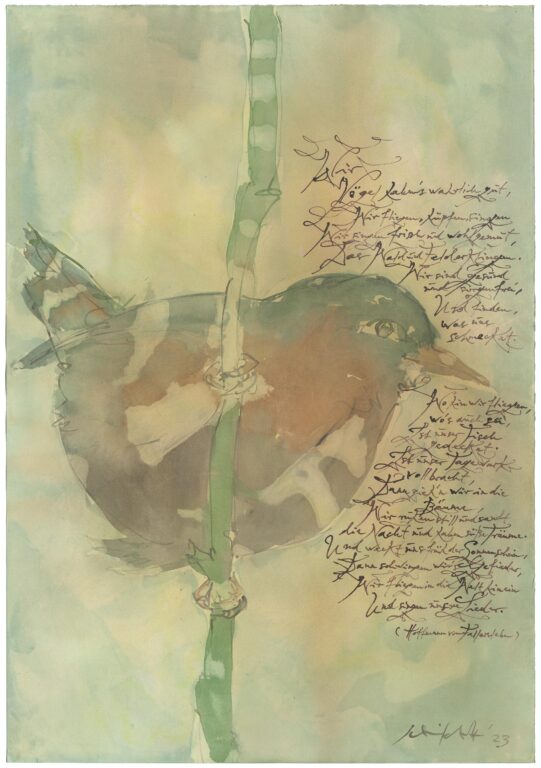 Wir
Vögel habn's wahrlich gut,
Wir fliegen, hüpfen, singen
Wir singen frisch und wohlgemut,
Das Wald und Feld erklingen.
Wir sind gesund
und sorgenfrei,
Und finden,
was uns
schmecket.
Wohin wir fliegen,
wo's auch sei,
Ist unser Tisch
gedecket.
Ist unser Tagewerk
vollbracht,
Dann zieh'n wir in die
Bäume,
Wir ruhen still und sanft
die Nacht und habn süße Träume.
Und weckt uns früh der Sonnenschein,
Dann schwingen wir's Gefieder,
Wir fliegen in die Welt hinein
Und singen unsre Lieder.
(Hoffmann von Fallersleben)
'23